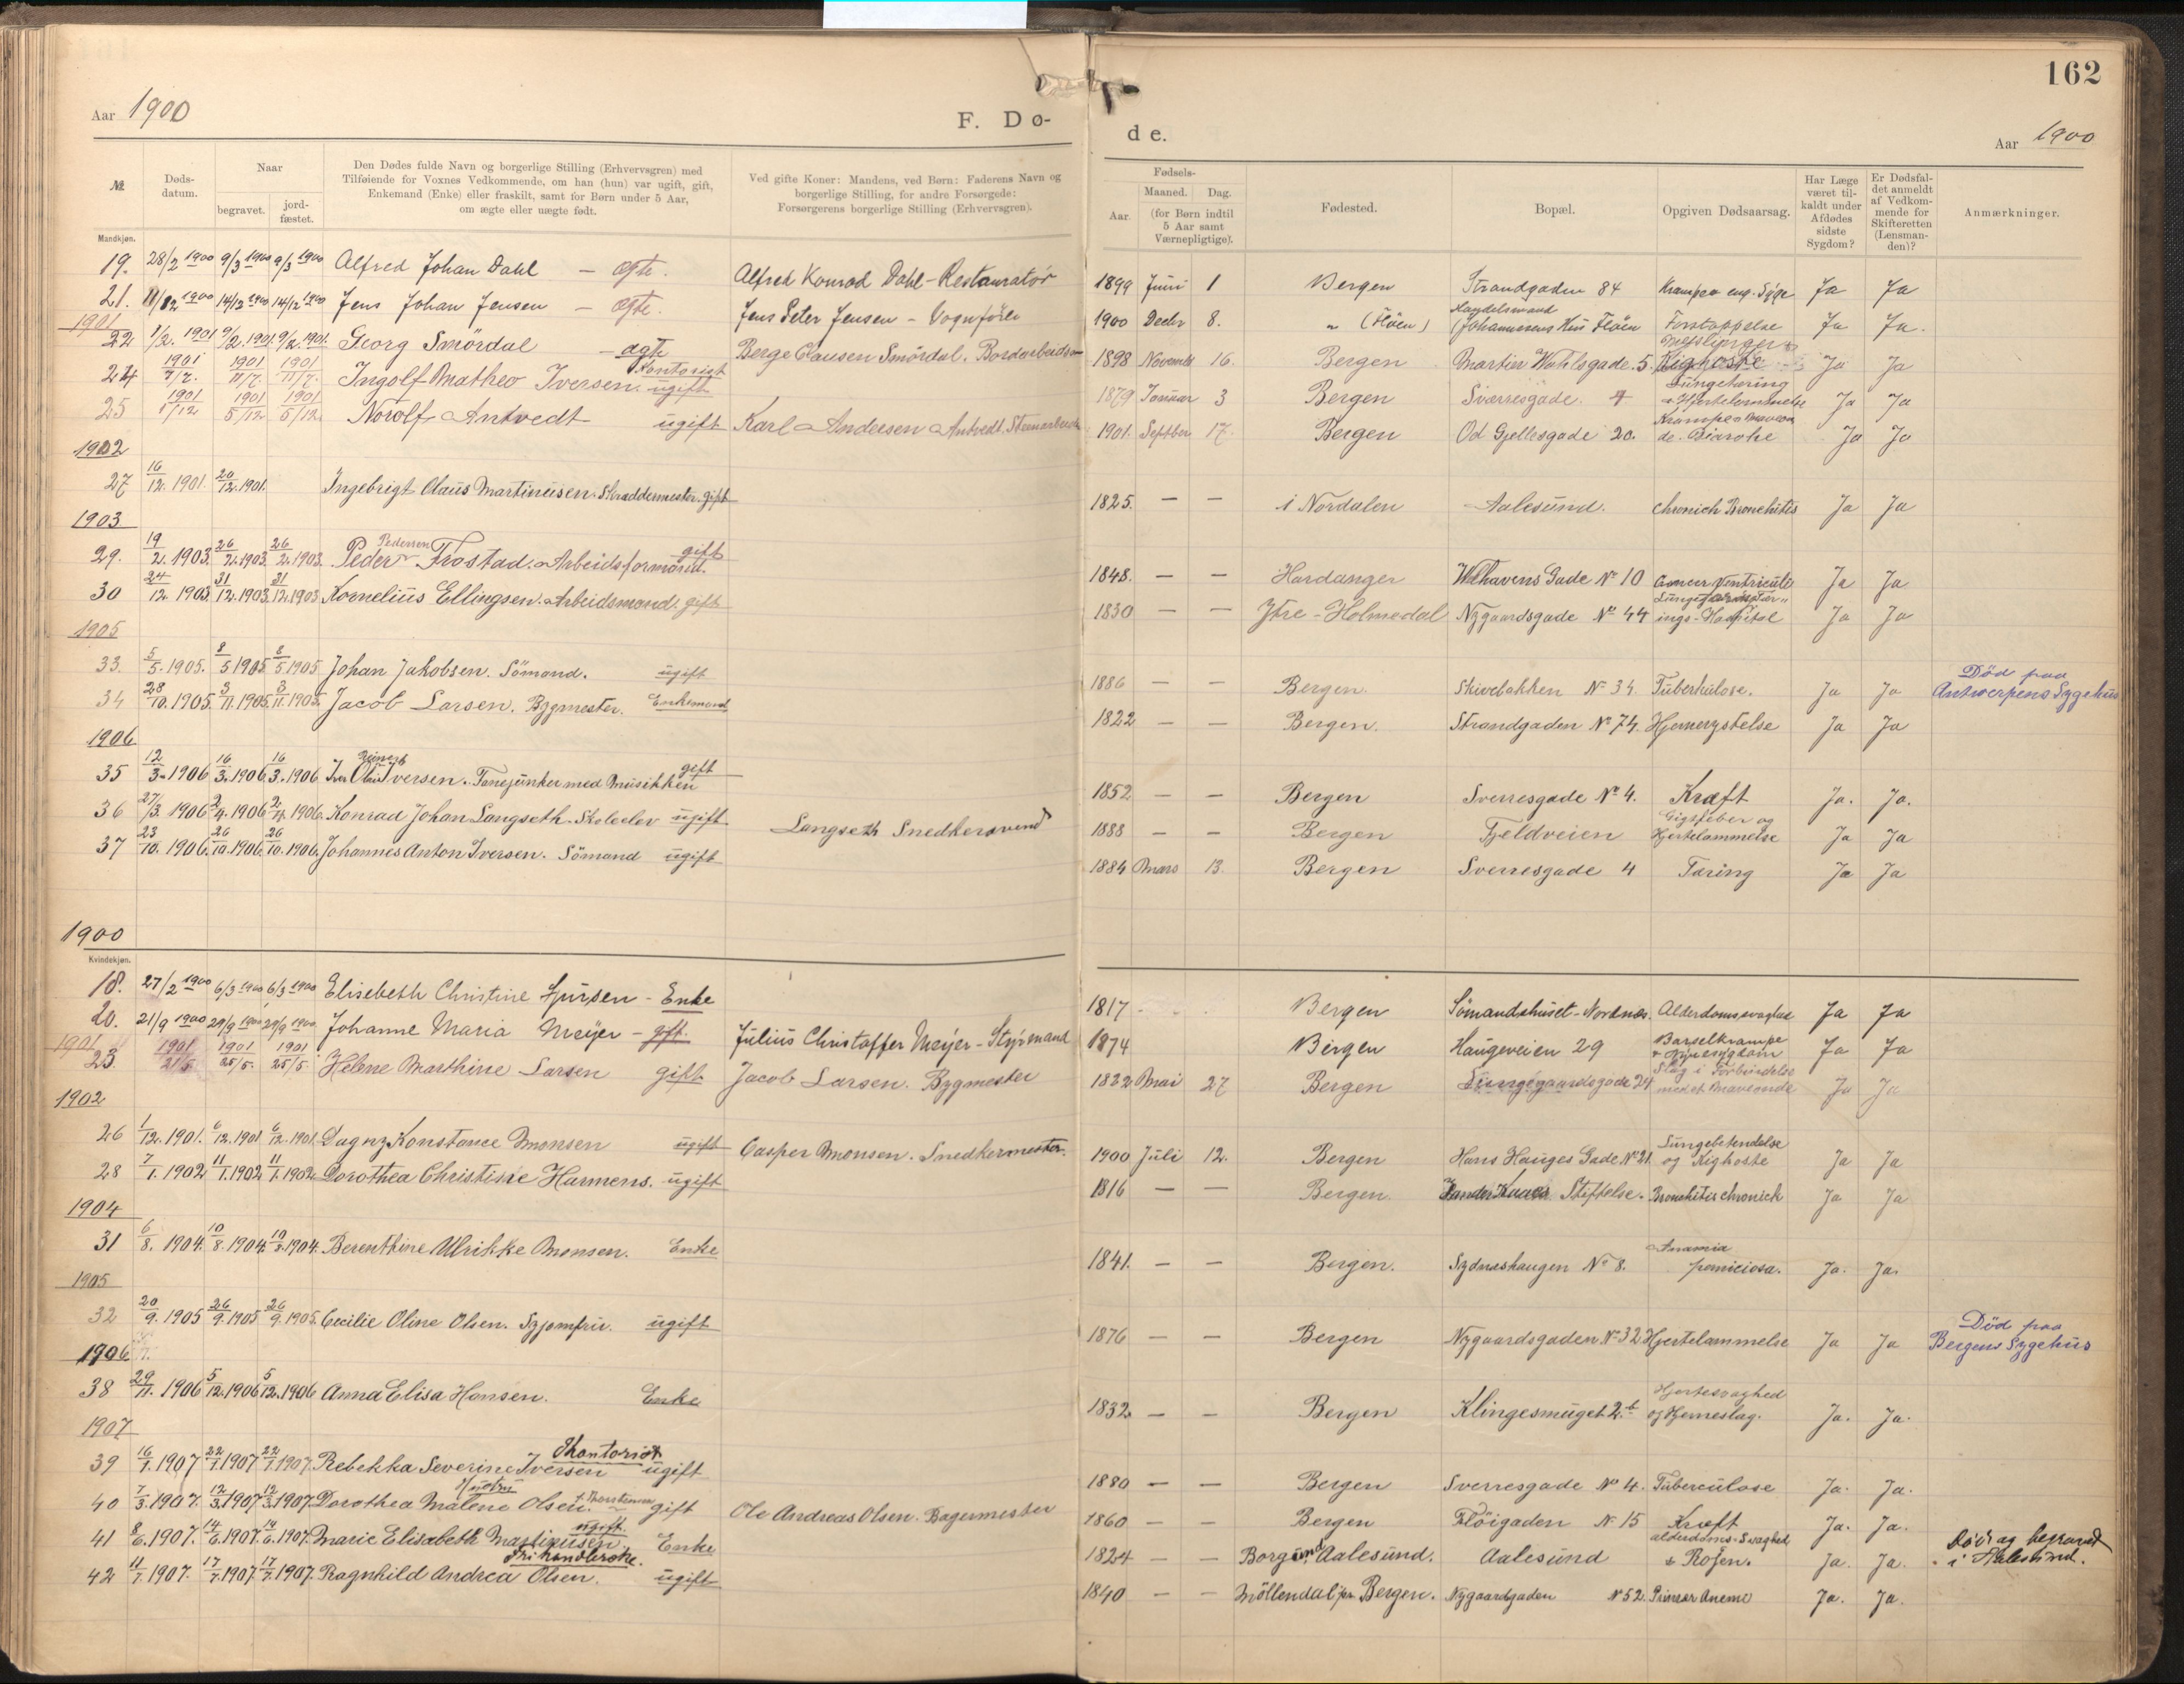 162
Aar 1900
F. Dø-
de.
Aar 1900
№
Døds-
datum.
Naar
begravet.
jord-
fæstet.
Den Dødes fulde Navn og borgerlige Stilling (Erhvervsgren) med
Tilføiende for Voxnes Vedkommende, om han (hun) var ugift, gift,
Enkemand (Enke) eller fraskilt, samt for Børn under 5 Aar,
om ægte eller uægte født.
Ved gifte Koner: Mandens, ved Børn: Faderens Navn og
borgerlige Stilling, for andre Forsørgede:
Forsørgerens borgerlige Stilling (Erhvervsgren).
Fødsels-
Aar.
Maaned.
Dag.
(for Børn indtil
5 Aar samt
Værnepligtige).
Fødested.
Bopæl.
Opgiven Dødsaarsag.
Har Læge
været til-
kaldt under
Afdødes
sidste
Sygdom?
Er Dødsfal-
det anmeldt
af Vedkom-
mende for
Skifteretten
(Lensman-
den)?
Anmærkninger.
Mandkjøn.
19. 28/2 1900 9/3 1900 9/3 1900 Alfred Johan Dahl - ægte. Alfred Konrad Dahl - Restauratør 1899 Juni 1 Bergen Strandgaden 84 Krampe eng. Syge Ja Ja
21. 11/12 1900 14/12 1900 14/12 1900 Jens Johan Jensen - ægte. Jens Peter Jensen - Vognfører 1900 Decbr 8. " (Fløen) Handelsmand
Johannesens Hus Fløen Forstoppelse Ja Ja.
1901
22 1/2. 1901 9/2. 1901 9/2. 1901. Georg Smördal - ægte Berge Clausen Smördal. 1898 Novemb 16. Bergen Martin Wahlsgade. 5. Meslinger &
Kighoste Ja Ja
24 1901 7/7. 1901 11/7. 1901 11/7. Ingolf Matheo Iversen. Kontorist ugift 1879 Januar 3 Bergen Sverresgade. 4 Lungetæring
& Hjertelammelse Ja Ja
25 1901 1/12 1901 5/12 1901 5/12. Norolf Antvedt ugift Karl Andersen Antvedt. 1901. Septbr 17. Bergen Od Gjellesgade 20. Krampe
Ja Ja
1902
27 16/12. 1901. 20/12. 1901. Ingebrigt Claus Martinusen. Skraddermester. gift 1825. - - i Nordalen Aalesund. chronich Bronchitis Ja Ja
1903
29. 19/2. 1903. 26/2. 1903. 26/2. 1903. Peder Pedersen Frostad. Arbeidsformand. gift 1848. - - Hardanger Welhavens Gade № 10 Cancer Ventriculi Ja Ja
30 24/12. 1903. 31/12. 1903. 31/12. 1903 Kornelius Ellingsen. Arbeidsmand. gift 1830 - - Ytre-Holmedal Nygaardsgade № 44 ings-Hospital Ja Ja
1905
33. 5/5. 1905. 8/5 1905 8/5 1905 Johan Jakobsen. Sömand. ugift 1886 - - Bergen. Skivebakken № 34. Tuberkulose. Ja Ja Död paa
Antwerpens Sygehus
34 28/10. 1905. 3/11. 1905. 3/11. 1905. Jacob Larsen. Bygmester. Enkemand 1822 - - Bergen. Strandgaden № 74. Hjernerystelse Ja Ja
1906
35 12/3. 1906 16/3. 1906 16/3. 1906 Iver Olai Reinert Iversen. Fanejunker med Musikken gift 1852 - - Bergen Sverresgade № 4. Kræft Ja. Ja.
36 27/3. 1906 2/4. 1906 2/4. 1906. Konrad Johan Langseth. Skoleelev ugift Langseth Snedkersvend 1888 - - Bergen Fjeldveien Gigtfeber og
Hjertelammelse Ja Ja
37 23/10. 1906. 26/10. 1906. 26/10. 1906. Johannes Anton Iversen. Sömand ugift 1884 Mars 13. Bergen Sverresgade 4 Tæring Ja Ja
1900
Kvindekjøn.
18. 27/2 1900 6/3 1900 6/3 1900 Elisebeth Christine - Enke 1817 Bergen Sömandshuset - Nordnæs. Alderdomssvaghed Ja Ja
20. 21/9 1900 29/9 1900 29/9 1900. Johanne Maria Meyer - gft. Julius Christoffer Meyer - Styrmand 1874 Bergen Haugeveien 29 Barselkrampe
& Nyresygdom Ja Ja
1901
23. 1901 21/5 1901 25/5. 1901 25/5. Helene Marthine Larsen gift Jacob Larsen. Bygmester 1822 Mai 27 Bergen Lungegaardsgade 24 Slag i Forbindelse
med et Maveonde Ja Ja
1902
26 1/12. 1901. 6/12. 1901 6/12. 1901. Dagny Konstance Monsen ugift Casper Monsen. Snedkermester. 1900 Juli 12. Bergen Hans Hauges Gade № 21. Lungebetendelse
og Kighoste Ja Ja
28 7/1. 1902 11/1. 1902 11/1. 1902. Dorothea Christine Harmens. ugift 1816 - - Bergen Zander Kaaes Stiftelse. Bronchitis chronick Ja Ja
1904
31 6/8. 1904. 10/8. 1904. 10/8. 1904. Berenthine Ulrikke Monsen. Enke 1841. - - Bergen. Sydnæshaugen № 8. Anæmia
perniciosa. Ja. Ja.
1905
32 20/9. 1905 26/9. 1905 26/9. 1905. Cecilie Oline Olsen. Syjomfru. ugift 1876 - - Bergen Nygaardsgaden № 32 Hjertelammelse Ja Ja Död paa
Bergens Sygehus
1906
38 29/11. 1906 5/12. 1906 5/12. 1906 Anna Elisa Hansen. Enke 1832 - - Bergen Klingesmuget 2.b Hjertesvaghed
og Hjerneslag. Ja. Ja.
1907
39 16/1. 1907 22/1. 1907 22/1. 1907. Rebekka Severine Iversen Kontorist ugift 1880 - - Bergen Sverresgade № 4. Tuberculose Ja. Ja.
40 7/3. 1907. 12/3. 1907 12/3. 1907. Dorothea Malene Olsen. Hustru gift Ole Andreas Olsen. Bagermester 1860 - - Bergen Flöigaden № 15 Kræft Ja. Ja.
41 8/6. 1907. 14/6. 1907. 14/6. 1907. Marie Elisabeth Martinusen. ugift. Enke 1824 - - Borgund Aalesund. Aalesund alderdoms-Svaghed
& Rosen. Ja. Ja. Död og begravet
i Aalesund.
42 11/7. 1907. 17/7. 1907 17/7. 1907. Ragnhild Andrea Olsen. ugift 1840 - - Möllendal pr. Bergen. Nygaardgaden № 52. Anemi Ja. Ja.